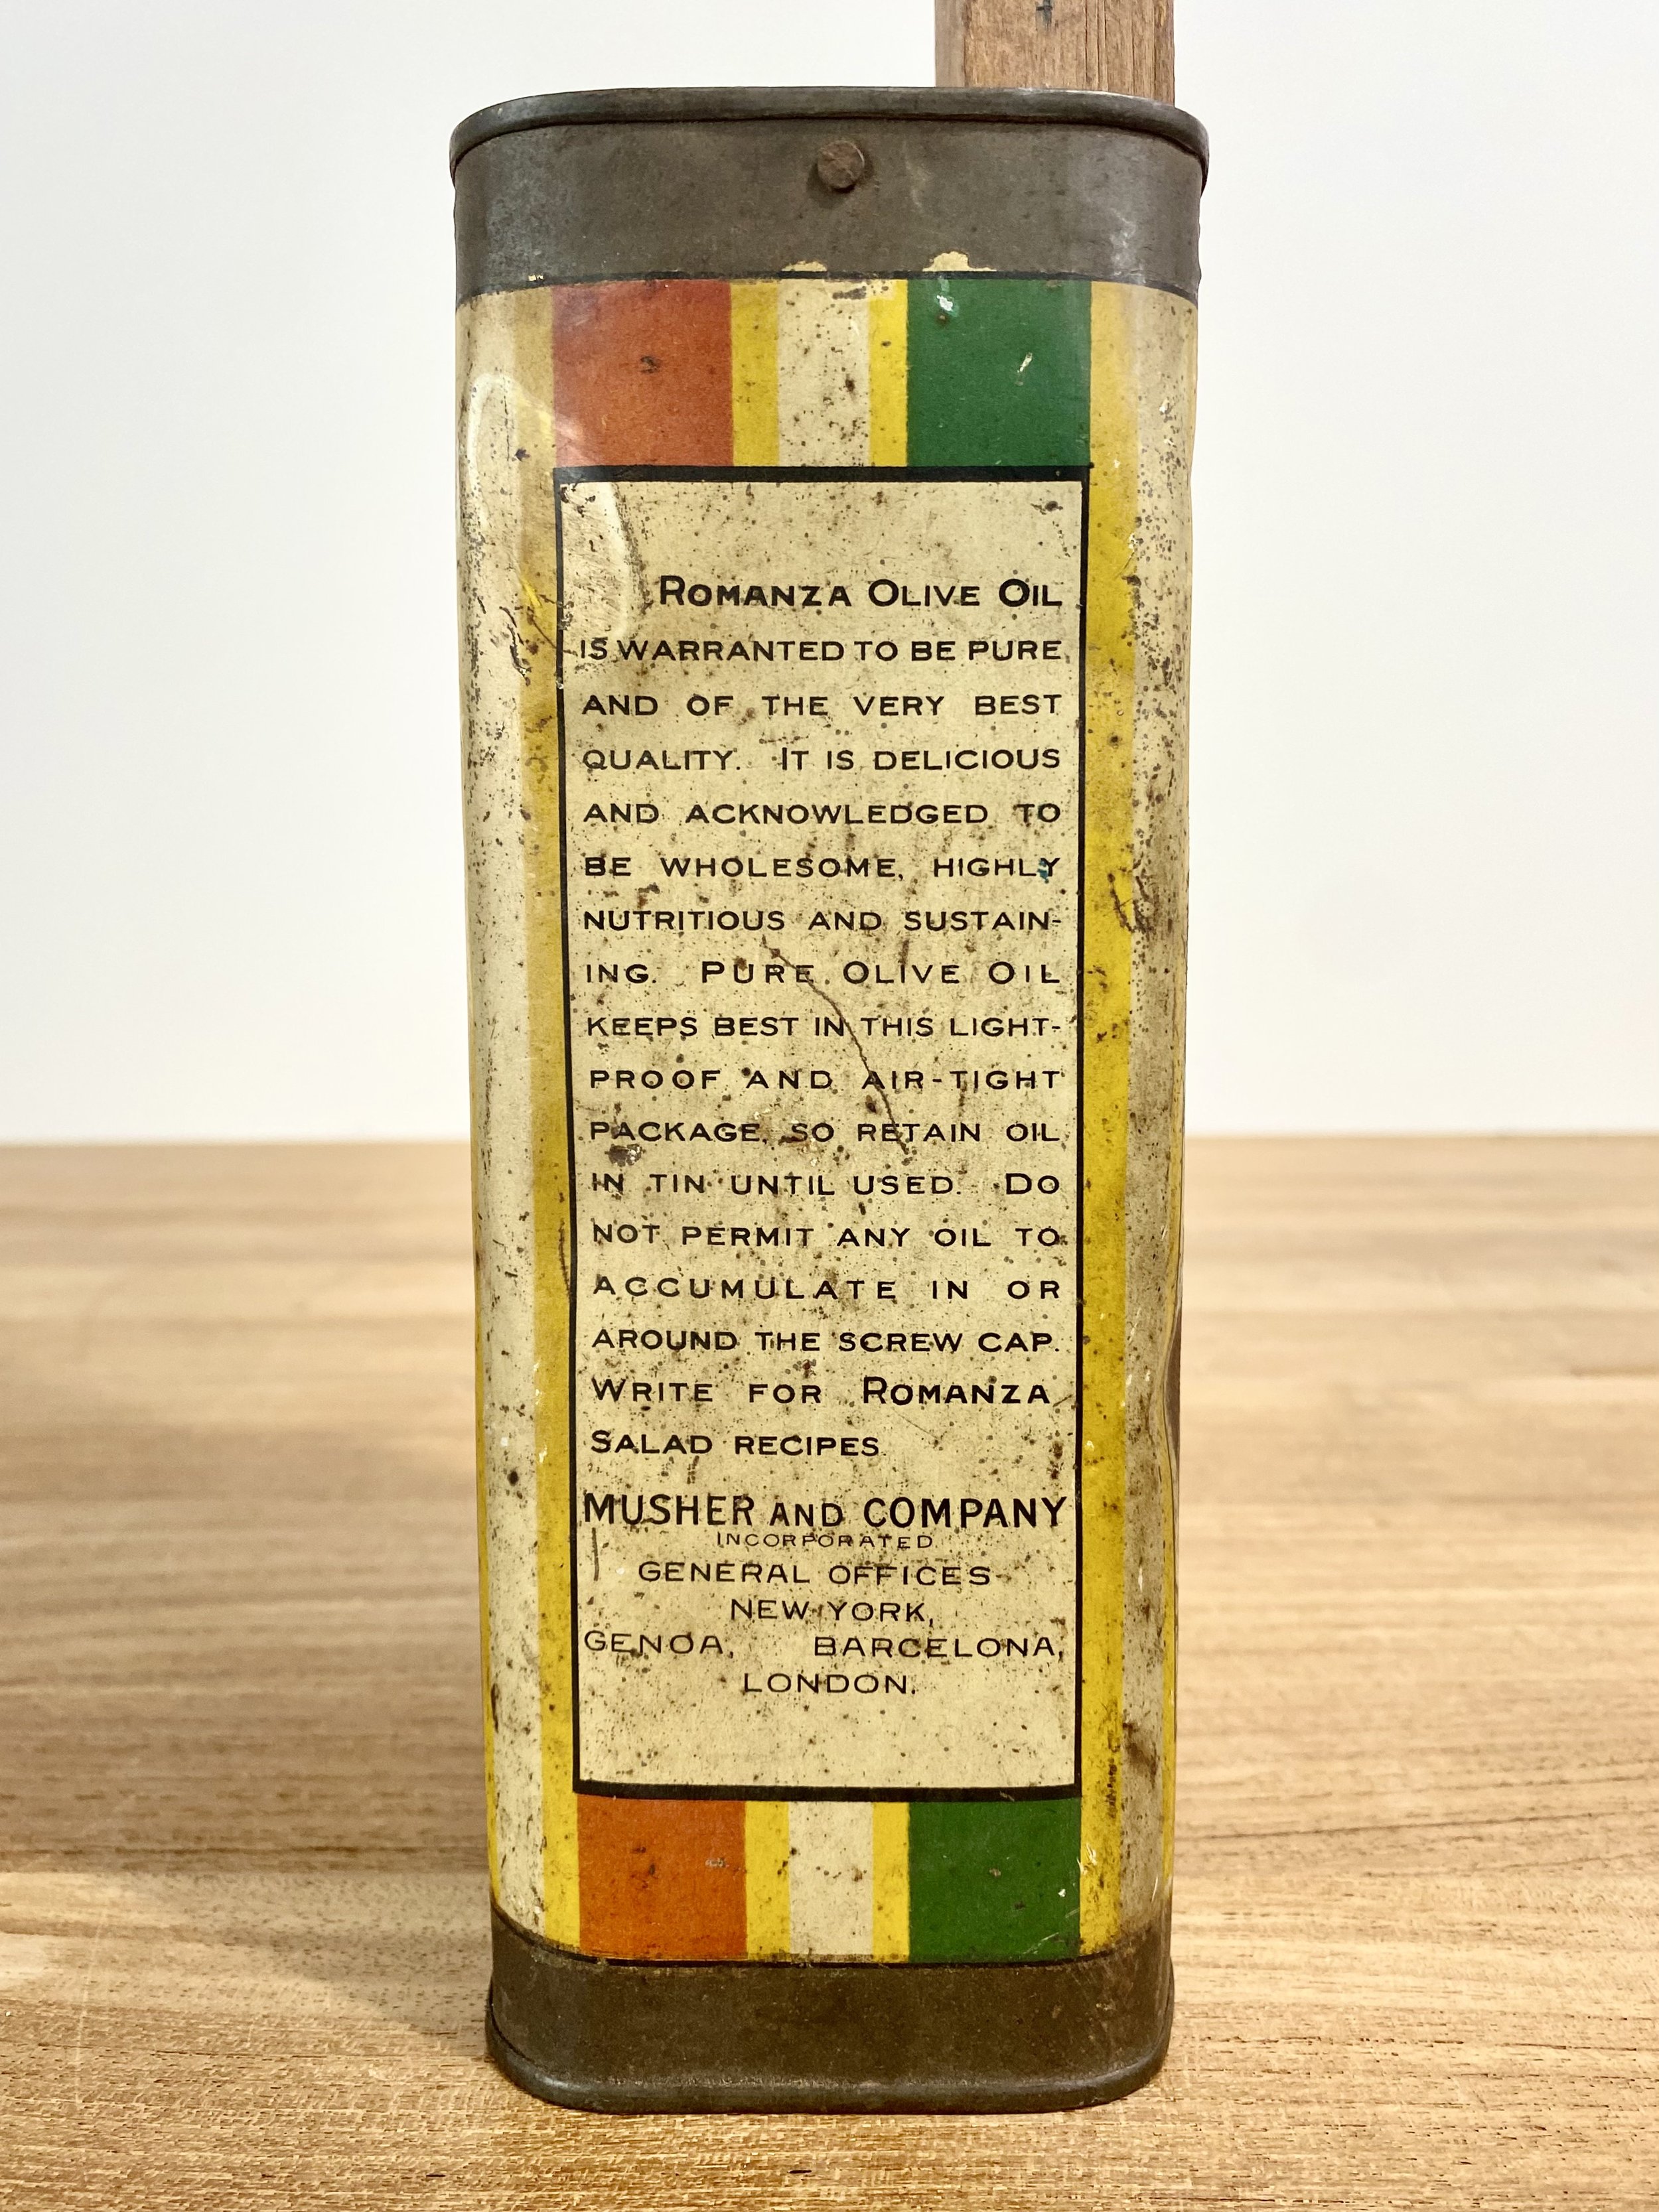 ROMANZA OLIVE OIL
IS WARRANTED TO BE PURE
AND OF THE VERY BEST
QUALITY. IT IS DELICIOUS
AND ACKNOWLEDGED TO
BE WHOLESOME, HIGHLY
NUTRITIOUS AND SUSTAIN-
ING. PURE OLIVE OIL
KEEPS BEST IN THIS LIGHT-
PROOF AND AIR-TIGHT
PACKAGE, SO RETAIN OIL
IN TIN UNTIL USED. DO
NOT PERMIT ANY OIL TO
ACCUMULATE IN OR
AROUND THE SCREW CAP.
WRITE FOR ROMANZA
SALAD RECIPES
MUSHER AND COMPANY
INCORPORATED
GENERAL OFFICES
NEW YORK,
GENOA, BARCELONA,
LONDON.